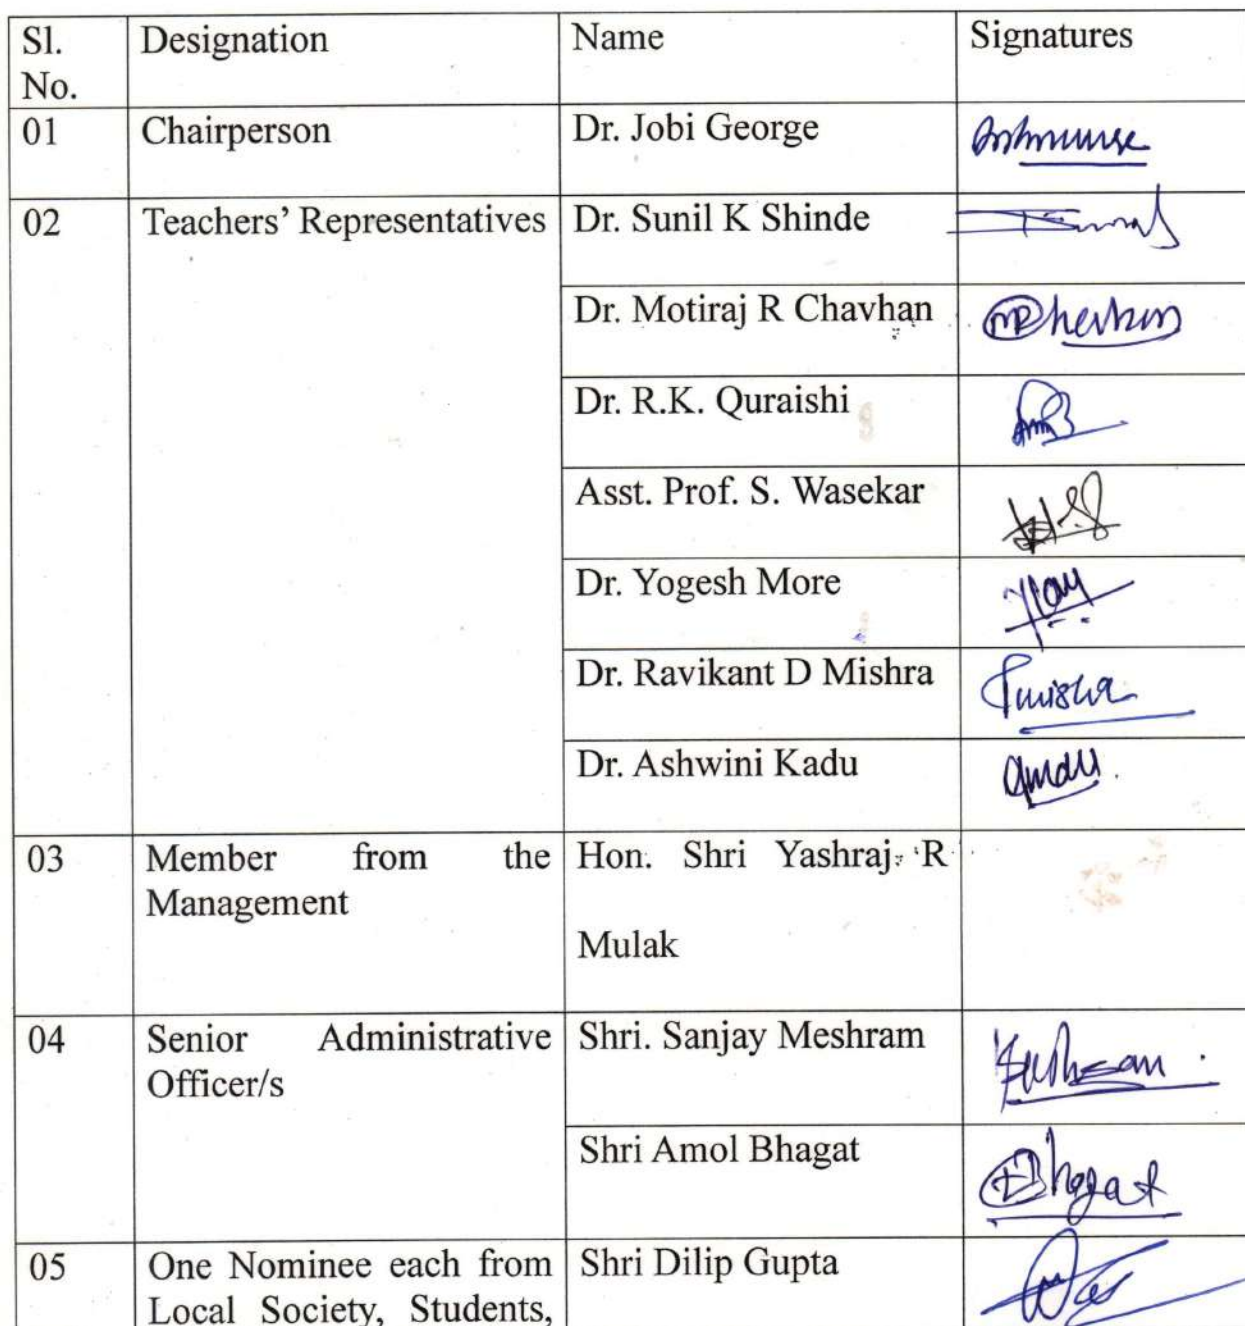 Sl. No. Designation Name Signatures
01 Chairperson Dr. Jobi George
02 Teachers’ Representatives Dr. Sunil K Shinde
Dr. Motiraj R Chavhan
Dr. R.K. Quraishi
Asst. Prof. S. Wasekar
Dr. Yogesh More
Dr. Ravikant D Mishra
Dr. Ashwini Kadu
03 Member from the Management Hon. Shri Yashraj R
Mulak
04 Senior Administrative Officer/s Shri. Sanjay Meshram
Shri Amol Bhagat Bhagat
05 One Nominee each from Shri Dilip Gupta
Local Society, Students,